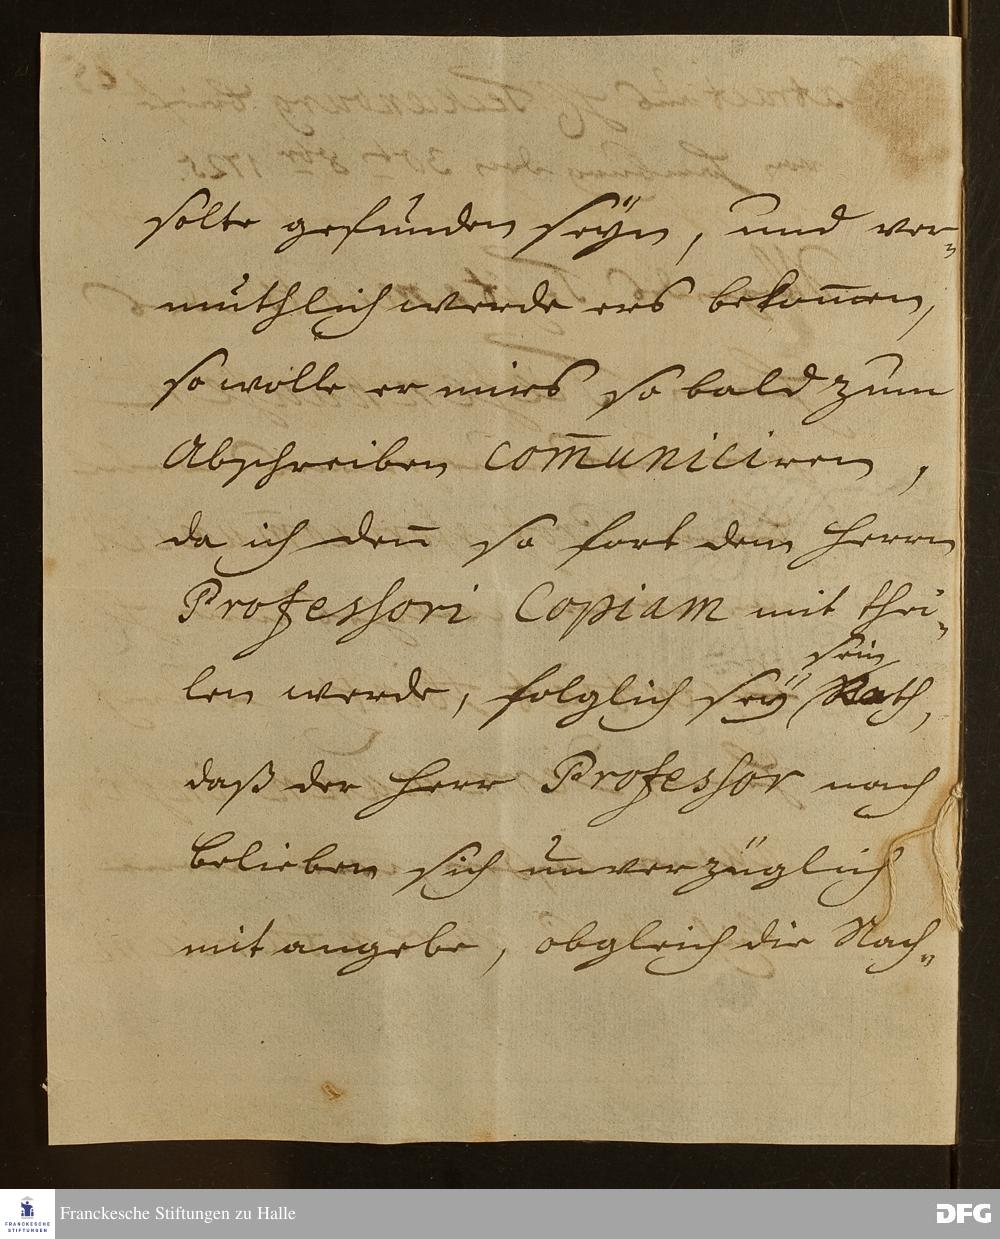 solte gefunden seÿn, und ver-
muthlich werde ers bekom̄en,
so wolle er mirs so bald zum
Abschreiben com̄uniciren,
da ich den̄ so fort dem Herrn
Professori Copiam mit thei-
len werde, folglich seÿ sein Rath,
daß der Herr Professor nach
belieben sich unverzüglich
mit angebe, obgleich die Nach-
FRANCKESCHE
STIFTUNGEN
Franckesche Stiftungen zu Halle
DFG